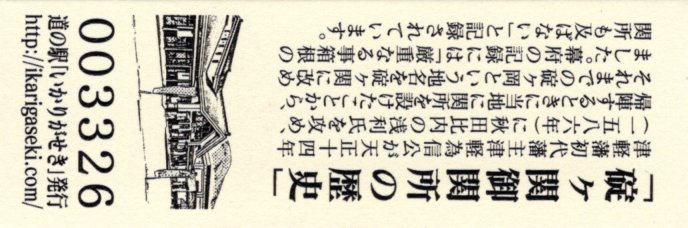 「碇ヶ関御関所の歴史」
津軽藩初代藩主津軽為信公が天正十四年
(一五八六年)に秋田比内の浅利氏を攻め、
帰朝するときに当地に関所を設けたことから、
それまでの碇ヶ岡という地名を碇ヶ関に改め
ました。幕府の記録には「厳重なる事箱根の
関所も及ばない」と記録されています。
003326
道の駅「いかりがせき」発行
http://ikarigaseki.com/